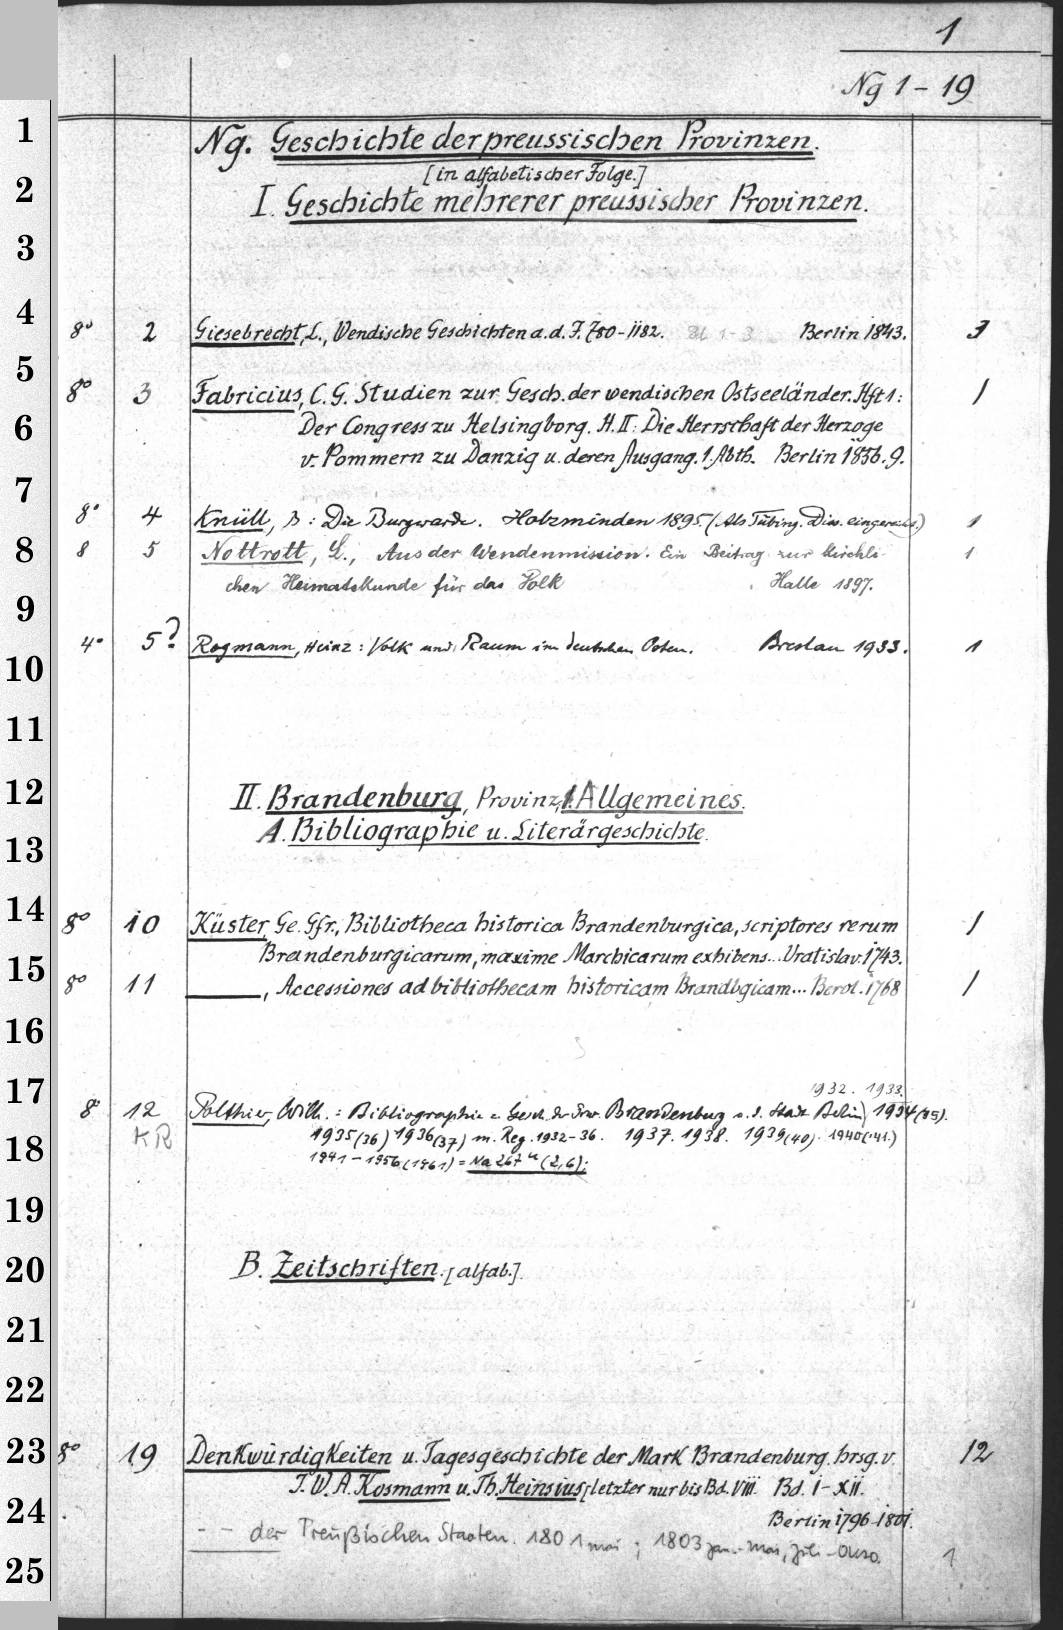 1
Ng 1 - 19
1
Ng. Geschichte der preussischen Provinzen.
2
[in alfabetischer Folge.]
I. Geschichte mehrerer preussischer Provinzen.
3
4
8° 2 Giesebrecht, L., Wendische Geschichten a. d. J. 780-1182. Bd 1-3 Berlin 1843. 3
5
8° 3 Fabricius, C. G. Studien zur Gesch. der wendischen Ostseeländer. Hft 1: 1
6
Der Congress zu Helsingborg. H. II: Die Herrschaft der Herzoge
v. Pommern zu Danzig u. deren Ausgang. 1. Abth. Berlin 1856. 9.
7
8° 4 Knüll, B: Die Burgwarde. Holzminden 1895. (Als Tübing. Diss. eingereicht.) 1
8
8 5 Nottrott, L., Aus der Wendenmission. Ein Beitrag zur kirchli-
1
chen Heimatskunde für das Volk Halle 1897.
9
4° 5? Rogmann, Heinz: Volk und Raum im deutschen Osten. Breslau 1933. 1
10
11
12
II. Brandenburg, Provinz, 1. Allgemeines.
A. Bibliographie u. Literärgeschichte.
13
14
8° 10 Küster, Ge. Gfr., Bibliotheca historica Brandenburgica, scriptores rerum 1
Brandenburgicarum, maxime Marchicarum exhibens... Vratislav. 1743.
15
8° 11 ——, Accessiones ad bibliothecam historicam Brandbgicam... Berol. 1768 1
16
17
1932. 1933.
8° 12 Polthier, Wilh.: Bibliographie z. Gesch. der Prov. Brandenburg u. d. Stadt Berlin) 1934 (35).
KR 1935 (36) 1936 (37) m. Reg. 1932-36. 1937. 1938. 1939 (40). 1940 (41.)
18
1941-1956 (1961) = Na 267 (2,6):
19
20
B. Zeitschriften. [alfab.].
21
22
23
8° 19 Denkwürdigkeiten u. Tagesgeschichte der Mark Brandenburg, hrsg. v. 12
J. W. A. Kosmann u. Th. Heinsius [letzter nur bis Bd. VIII. Bd. I-XII.
24
Berlin 1796-1801.
- - der Preußischen Staaten. 1801 Mai; 1803 Jan.-Mai, Juli- 1
25